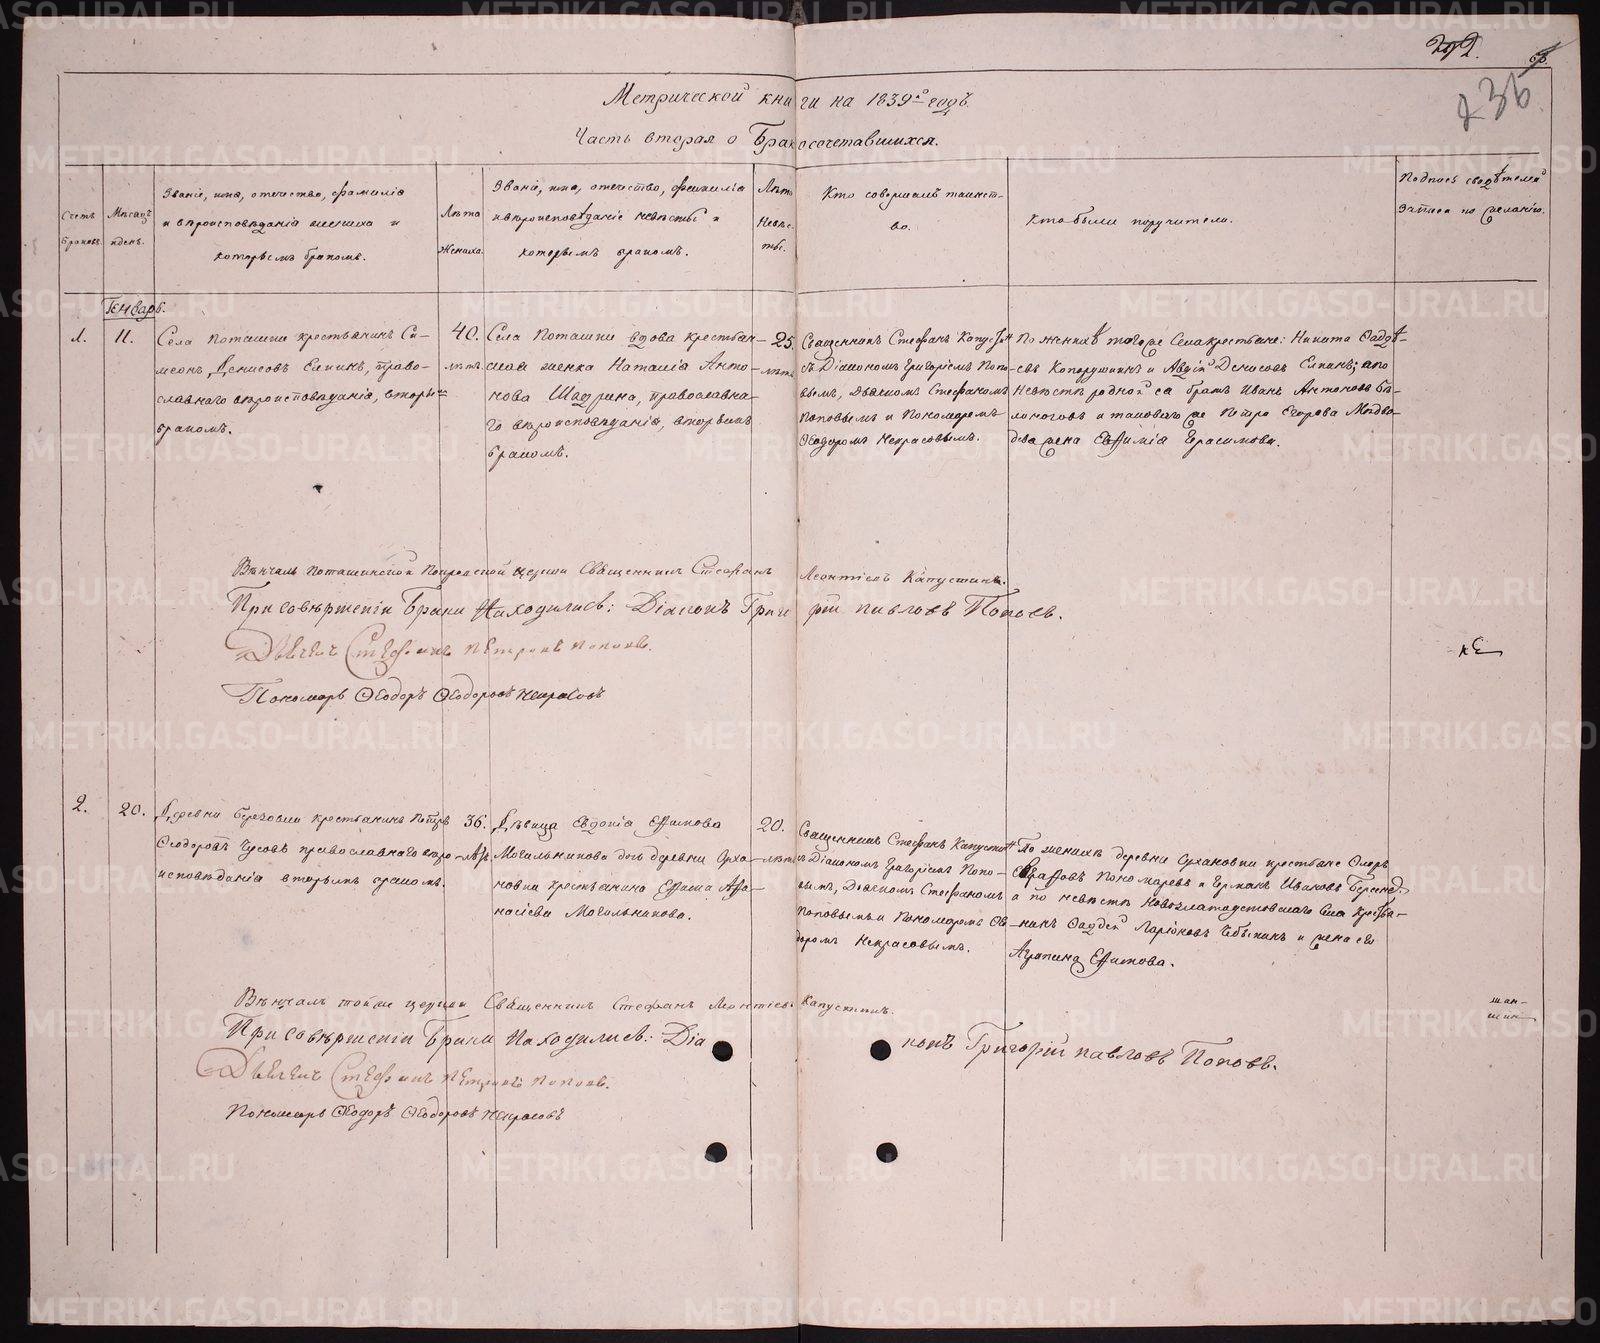 292.
236
Метрической книги на 1839й годъ.
Часть вторая о Бракосочетавшихся.
Счетъ Браковъ.
Мѣсяцъ и день.
Званіе, имя, отечество, фамилія
и вѣроисповѣданіе жениха и
которымъ бракомъ.
Лѣта
Жениха.
Званіе, имя, отечество, фамилія
и вѣроисповѣданіе невѣсты и
которымъ бракомъ.
Лѣта
Невѣс-
ты.
Кто совершалъ таинст-
во.
Кто были поручители.
Подпись свидѣтелей
записи по желанію.
Генварь.
1.
11.
Села Поташки крестьянинъ Си-
меонъ Денисовъ Елкинъ, право-
славнаго вѣроисповѣданія, вторымъ
бракомъ.
40.
лѣтъ
Села Поташки вдова крестьян-
ская женка Наталія Анто-
нова Шадрина, православна-
го вѣроисповѣданія, вторымъ
бракомъ.
25.
лѣтъ
Священникъ Стефанъ Капустин
съ Діакономъ Григоріемъ Попо-
вымъ, Дьячкомъ Стефаномъ
Поповымъ и Пономаремъ
Ѳеодоромъ Некрасовымъ.
По женихѣ тогоже Села крестьяне: Никита Ѳадѣ-
евъ и Авдій Денисовъ Елкинъ; а по
Невѣстѣ родной ея братъ Иванъ Антоновъ Бѣ-
лоноговъ и таковаго же Петра Егорова Мѣдво-
дева жена Евѳимія Герасимова.
Вѣнчалъ Поташинской Покровской церкви Священникъ Стефанъ Леонтіевъ Капустинъ.
При совѣршеніи Брака Находились: Діаконъ Григорій павловъ Поповъ.
Дьячекъ Стефанъ Петровъ Поповъ.
Пономарь Ѳеодоръ Ѳеодоровъ Некрасовъ
2.
20.
Деревни Березовки крестьянинъ Петръ
Ѳеодоровъ Чусовъ православнаго вѣро-
исповѣданія вторымъ бракомъ.
36.
лѣтъ
Дѣвица Евдокія Ефимова
Могильникова дочь деревни Арха-
новки крестьянина Ефима Афа-
насіева Могильникова.
20.
лѣтъ
Священникъ Стефанъ Капустин
съ Діакономъ Григоріемъ Попо-
вымъ, Дьячкомъ Стефаномъ
Поповымъ и Пономаремъ Ѳе-
доромъ Некрасовымъ.
По женихѣ деревни Архановки крестьяне
Пономаревъ и Германъ Ивановъ
а по невѣстѣ Новозлатоустовскаго Села крестья-
нинъ Ѳаддей Ларіоновъ Чебыкинъ и жена его
Агрипина Ефимова.
Вѣнчалъ тойже церкви Священникъ Стефанъ Леонтіевъ Капустинъ.
При совѣршеніи Брака находились: Діаконъ Григорій павловъ Поповъ.
Дьячекъ Стефанъ Петровъ Поповъ.
Пономарь Ѳеодоръ Ѳеодоровъ Некрасовъ
METRIKI.GASO-URAL.RU